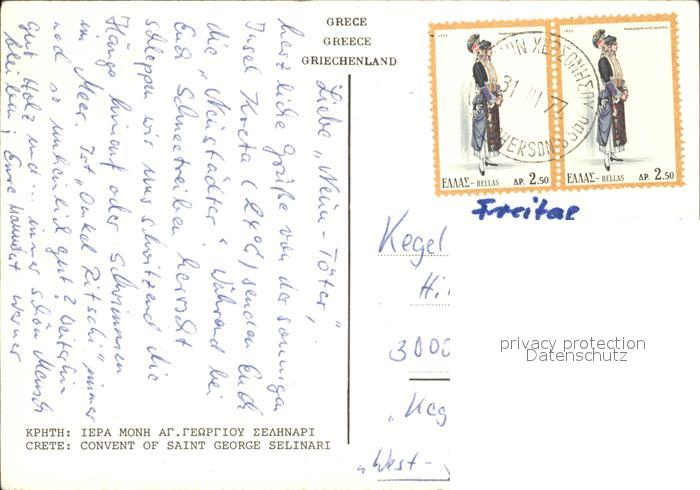 GRECE
GREECE
GRIECHENLAND
Liebe „Nein-Töter",
herzliche Grüße von der sonnigen
Insel Kreta (24°C) senden Euch
die „Neustädter". Während bei
Euch Schneetreiben herrscht
schleppen wir uns schwitzend die
Hänge hinauf oder schwimmen
im Meer. Ist „Onkel Fitschi" immer
noch so umkeinlich gut? Weiterhin
gut Holz und... immer schön Mensch
bleiben, Eure Werner
ΚΡΗΤΗ: ΙΕΡΑ ΜΟΝΗ ΑΓ.ΓΕΩΡΓΙΟΥ ΣΕΛΗΝΑΡΙ
CRETE: CONVENT OF SAINT GEORGE SELINARI
ΛΙΜΗΝ ΧΕΡΣΟΝΗΣΟΥ
31 III 77
HERSONISSOU
ΕΛΛΑΣ-HELLAS ΔΡ. 2.50
ΕΛΛΑΣ-HELLAS ΔΡ. 2.50
Freitag
Kegel
Hi
3000
„Keg
„West-
privacy protection
Datenschutz